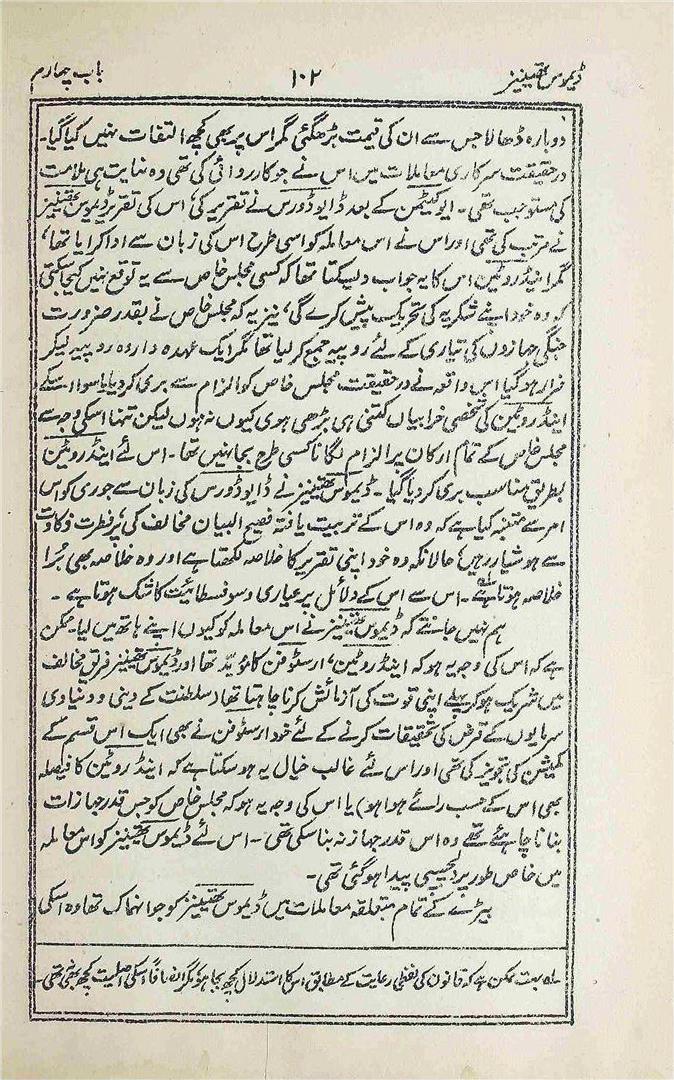 ڈیموس تھینیز ۱۰۲ باب چہارم
دوبارہ ڈھالا جس سے ان کی قیمت بڑھگئی مگر اس پر بھی کچھ التفات نہیں کیا گیا۔
درحقیقت سرکاری معاملات میں اس نے جو کارروائی کی تھی وہ نہایت ہی ملامت
کی مستوجب تھی۔ ایوکٹیمن کے بعد ڈایوڈورس نے تقریر کی، اس کی تقریر ڈیموس تھینیز
نے مرتب کی تھی اور اس نے اس معاملہ کو اسی طرح اس کی زبان سے ادا کرایا تھا،
مگر اینڈروٹین اس کا یہ جواب دیسکتا تھا کہ کسی مجلس خاص سے یہ توقع نہیں کیجاسکتی
کہ وہ خود اپنے شکریہ کی تحریک پیش کرے گی، نیز یہ کہ مجلس خاص نے بقدر ضرورت
جنگی جہازوں کی تیاری کے لئے روپیہ جمع کر لیا تھا مگر ایک عہدہ دار وہ روپیہ لیکر
فرار ہو گیا اس واقعہ نے درحقیقت مجلس خاص کو الزام سے بری کر دیا یا سوا اسکے
اینڈروٹین کی شخصی خرابیاں کتنی ہی بڑھی ہوی کیوں نہ ہوں لیکن تنہا اسکی وجہ سے
مجلس خاص کے تمام ارکان پر الزام لگانا کسی طرح بجا نہیں تھا۔ اس لئے اینڈروٹین
بطریق مناسب بری کر دیا گیا۔ ڈیموس تھینیز نے ڈایوڈورس کی زبان سے جوری کو اس
امر سے متنبہ کیا ہے کہ وہ اس کے تربیت یافتہ فصیح البیان مخالف کی پُرفطرت ذکاوت
سے ہوشیار رہیں، حالانکہ وہ خود اپنی تقریر کا خلاصہ لکھتا ہے اور وہ خلاصہ بھی بُرا
خلاصہ ہوتا ہے۔ اس سے اس کے دلائل پر عیاری و سوفسطائیت کا شک ہوتا ہے۔
ہم نہیں جانتے کہ ڈیموس تھینیز نے اس معاملہ کو کیوں اپنے ہاتھ میں لیا۔ ممکن
ہے کہ اس کی وجہ یہ ہو کہ اینڈروٹین، ارسٹوفن کا مؤید تھا اور ڈیموس تھینیز فریق مخالف
میں شریک ہو کر پہلے اپنی قوت کی آزمائش کرنا چاہتا تھا (سلطنت کے دینی و دنیاوی
سرمایوں کے قرض کی تحقیقات کرنے کے لئے خود ارسٹوفن نے بھی ایک اس قسم کے
کمیشن کی تجویز کی تھی اور اس لئے غالب خیال یہ ہو سکتا ہے کہ اینڈروٹین کا فیصلہ
بھی اس کے حسب رائے ہوا ہو) یا اس کی وجہ یہ ہو کہ مجلس خاص کو جس قدر جہازات
بنانا چاہئے تھے وہ اس قدر جہاز نہ بنا سکی تھی۔ اس لئے ڈیموس تھینیز کو اس معاملہ
میں خاص طور پر دلچسپی پیدا ہو گئی تھی۔
بیڑے کے تمام متعلقہ معاملات میں ڈیموس تھینیز کو جو انہماک تھا وہ اسکی
لہ بہت ممکن ہے کہ قانون کی لفظی رعایت کے مطابق اس کا استدلال کچھ بجا ہو مگر انصافاً اسکی اصلیت کچھ بھی نہ تھی۔